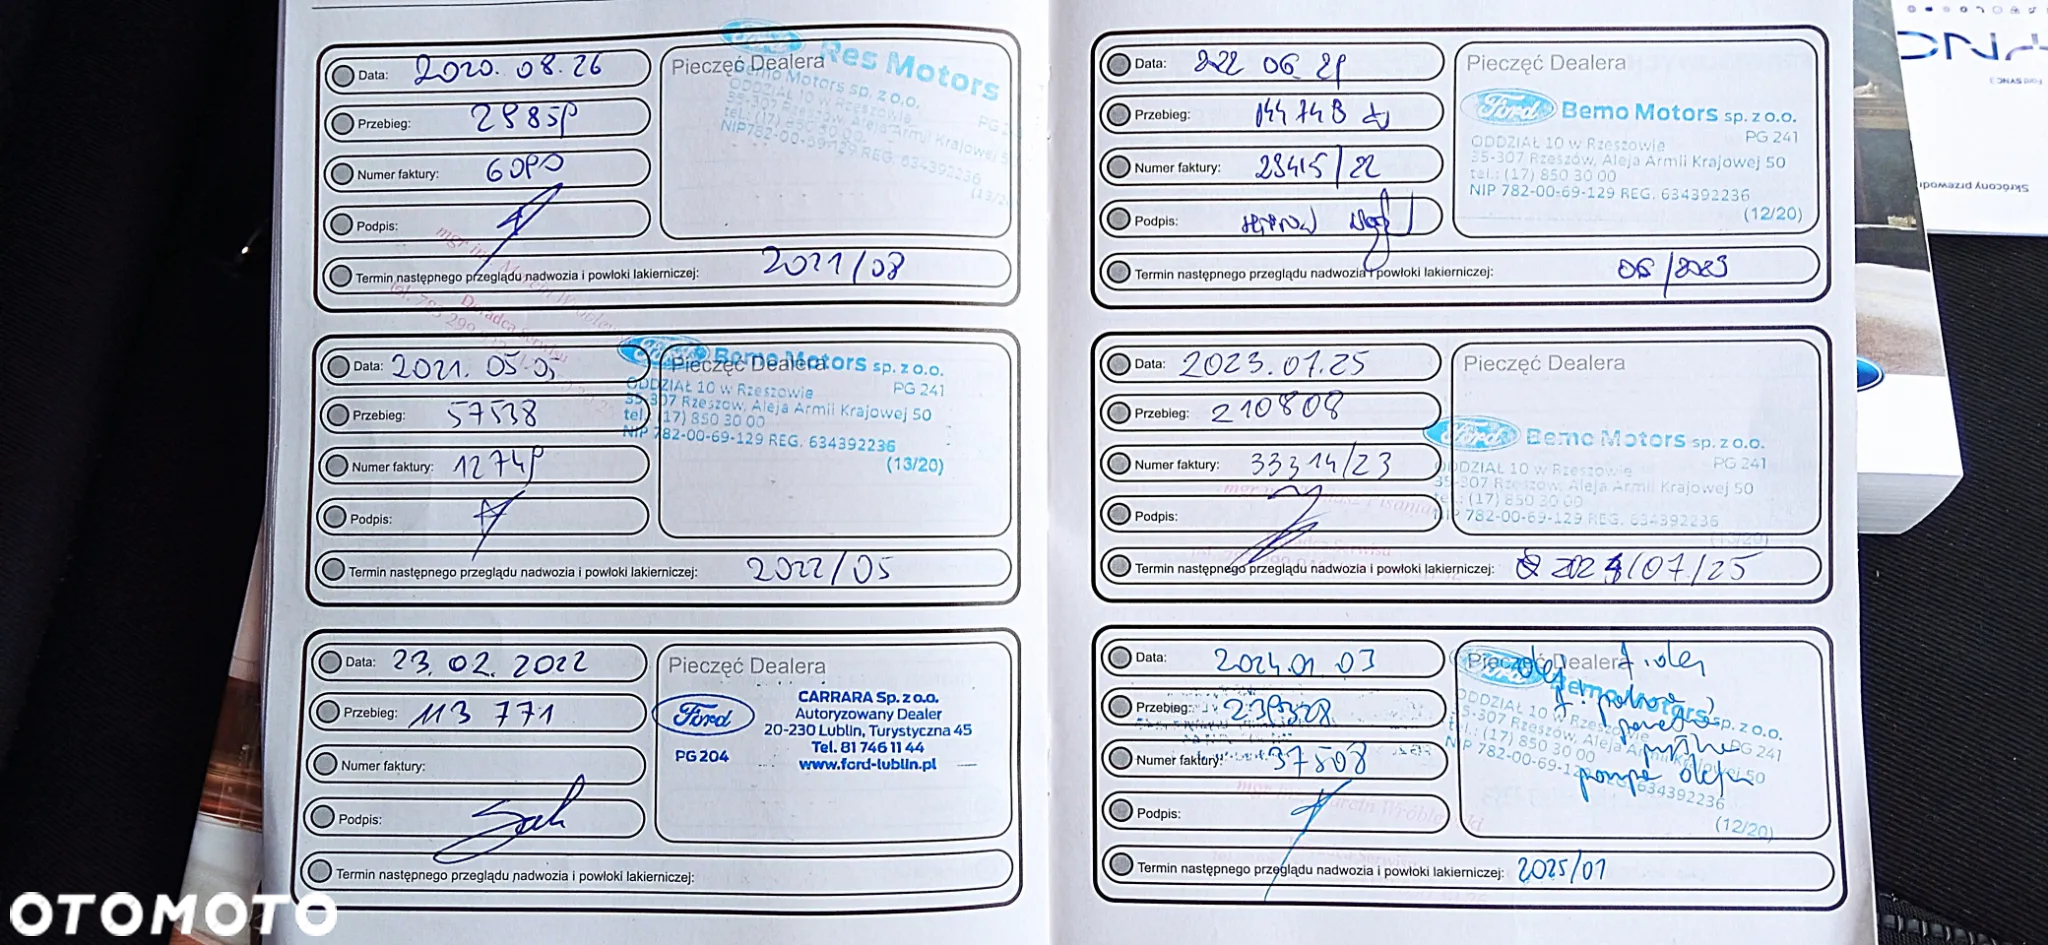 Data: 2020.08.26
Przebieg: 29859
Numer faktury:
Podpis:
Pieczęć Dealera
Ford Res Motors
Bemo Motors sp. z o.o.
ODDZIAŁ 10 w Rzeszowie PG 241
35-307 Rzeszów, Aleja Armii Krajowej 50
tel.: (17) 850 30 00
NIP 782-00-69-129 REG. 634392236
Termin następnego przeglądu nadwozia i powłoki lakierniczej: 2021/08
Data: 2021.05.05
Przebieg: 57538
Numer faktury: 12749
Podpis:
Pieczęć Dealera
Ford Bemo Motors sp. z o.o.
ODDZIAŁ 10 w Rzeszowie PG 241
35-307 Rzeszów, Aleja Armii Krajowej 50
tel.: (17) 850 30 00
NIP 782-00-69-129 REG. 634392236
(13/20)
Termin następnego przeglądu nadwozia i powłoki lakierniczej: 2022/05
Data: 23.02.2022
Przebieg: 113 771
Numer faktury:
Podpis:
Pieczęć Dealera
Ford
PG 204
CARRARA Sp. z o.o.
Autoryzowany Dealer
20-230 Lublin, Turystyczna 45
Tel. 81 746 11 44
www.ford-lublin.pl
Termin następnego przeglądu nadwozia i powłoki lakierniczej:
Data: 222 06 29
Przebieg: 144748
Numer faktury: 23415/22
Podpis:
Pieczęć Dealera
Ford Bemo Motors sp. z o.o.
PG 241
ODDZIAŁ 10 w Rzeszowie
35-307 Rzeszów, Aleja Armii Krajowej 50
tel.: (17) 850 30 00
NIP 782-00-69-129 REG. 634392236
(12/20)
Termin następnego przeglądu nadwozia i powłoki lakierniczej: 06/2023
Data: 2023.07.25
Przebieg: 210808
Numer faktury: 33314/23
Podpis:
Pieczęć Dealera
Ford Bemo Motors sp. z o.o.
ODDZIAŁ 10 w Rzeszowie PG 241
35-307 Rzeszów, Aleja Armii Krajowej 50
tel.: (17) 850 30 00
NIP 782-00-69-129 REG. 634392236
Termin następnego przeglądu nadwozia i powłoki lakierniczej: 2024/07/25
Data: 2024.01.03
Przebieg: 239328
Numer faktury: 37808
Podpis:
Pieczęć Dealera
olej f. olej
pompę oleju
Bemo Motors sp. z o.o.
ODDZIAŁ 10 w Rzeszowie PG 241
35-307 Rzeszów, Aleja Armii Krajowej 50
tel.: (17) 850 30 00
NIP 782-00-69-129 REG. 634392236
(12/20)
Termin następnego przeglądu nadwozia i powłoki lakierniczej: 2025/01
OTOMOTO